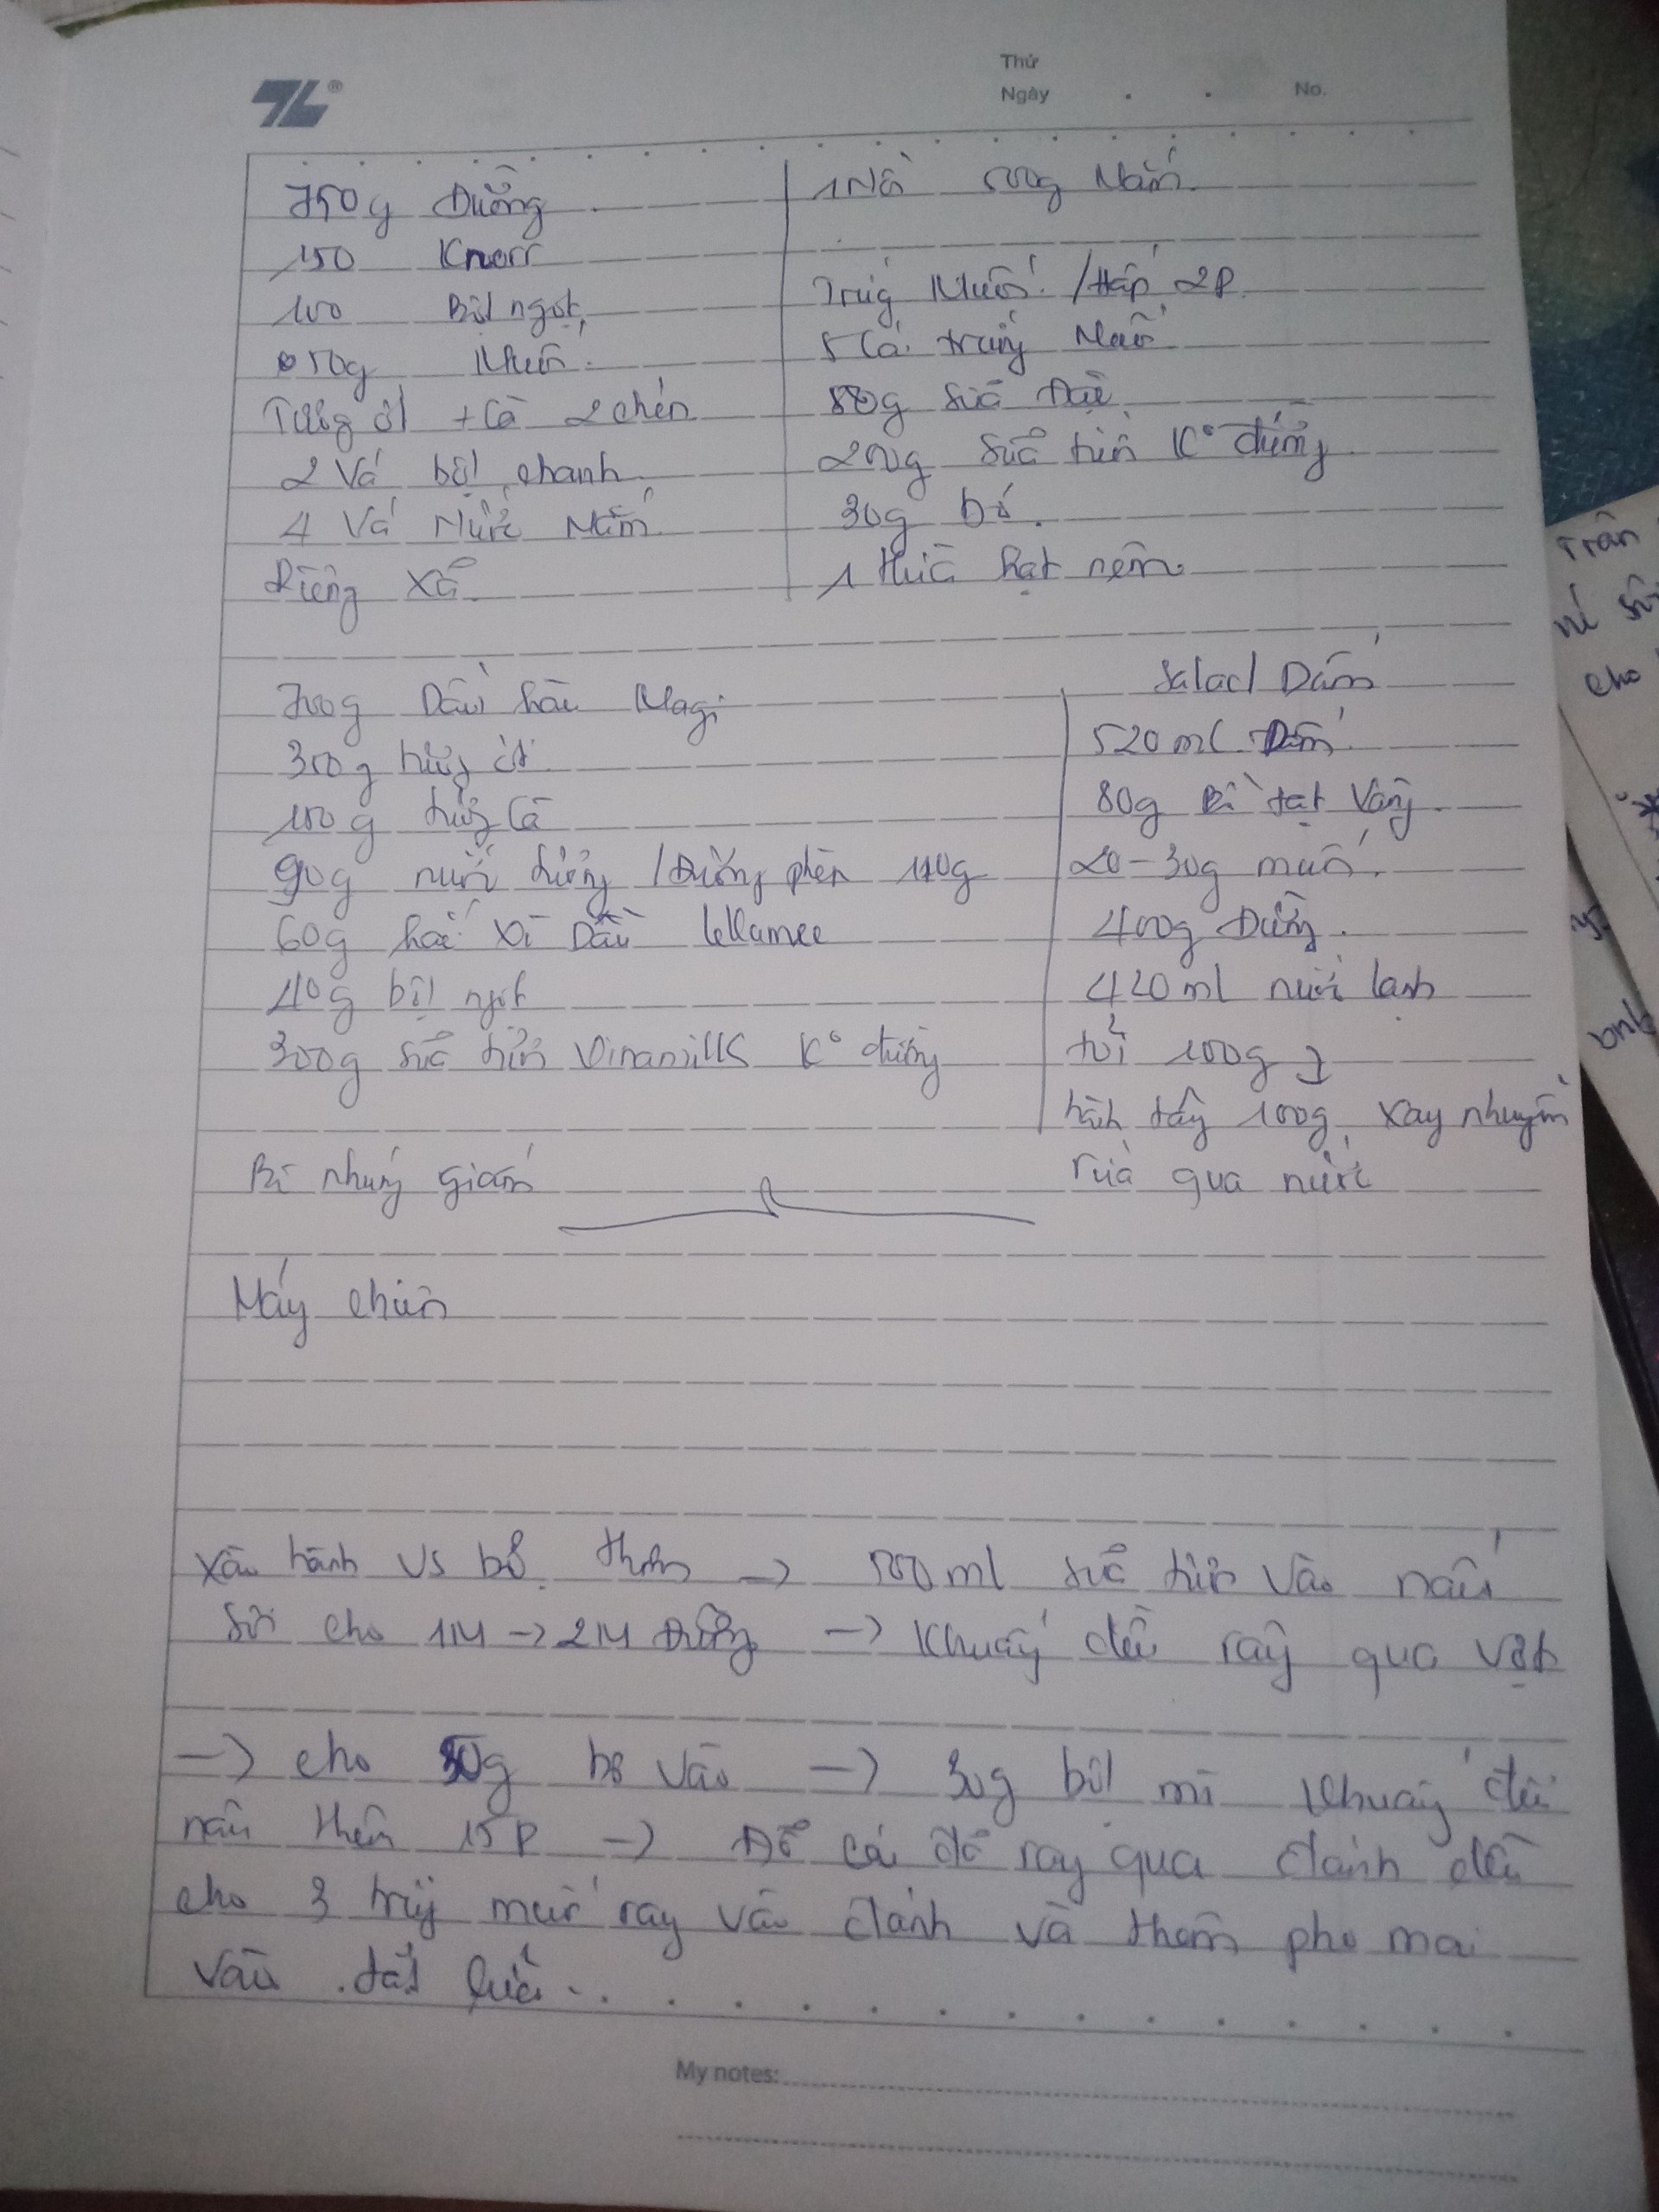 Thứ
Ngày . . No.
750g Đường
150 Knorr
100 Bột ngọt
50g Muối
Tương ớt + Cà 2 chén
2 Vá bột chanh
4 Vá Nước Mắm
Riềng Xả
1 Nồi 500g Mắm
Trứng Muối / Hấp 2P
5 Cái trứng Muối
80g Sữa Đặc
200g sữa tươi K° đường
30g bơ
1 thìa hạt nêm
700g Dầu hào Magi
300g tương ớt
100g tương Cà
90g nước đường / Đường phèn 110g
60g hắc xì Dầu
40g bột ngọt
300g sữa tươi Vinamilk K° đường
Bì nhúng giấm
Salad Dấm
520ml Dấm
80g tạt Vàng
20-30g muối
400g Đường
420ml nước lạnh
tỏi 100g
hành tây 100g, xay nhuyễn
rửa qua nước
Máy chiên
Xào hành vs bơ thơm -> 500ml sữa tươi vào nấu
sôi cho 1M -> 2M Đường -> Khuấy đều rây qua vợt
-> cho 50g bơ vào -> 30g bột mì Khuấy đều
nấu thêm 15P -> Đổ cái đó ray qua đánh đều
cho 3 trứng muối ray vào đánh và thêm pho mai
vào . tắt lửa.
My notes: